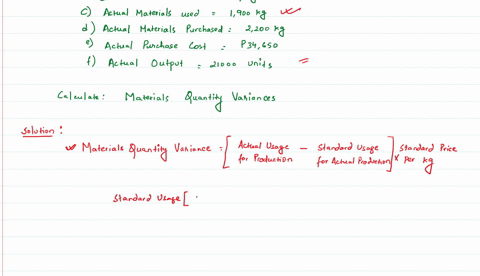 c) Actual Materials used = 1,900 kg
d) Actual Materials Purchased = 2,200 kg
e) Actual Purchase Cost = P34,650
f) Actual Output = 21000 units =
Calculate: Materials Quantity Variances
Solution:
Materials Quantity Variance = [Actual Usage for Production - Standard Usage for Actual Production] x Standard Price Per kg
Standard Usage [